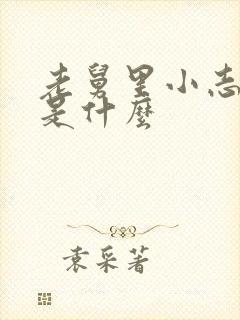 老舅里小志
是什麼
袁采著